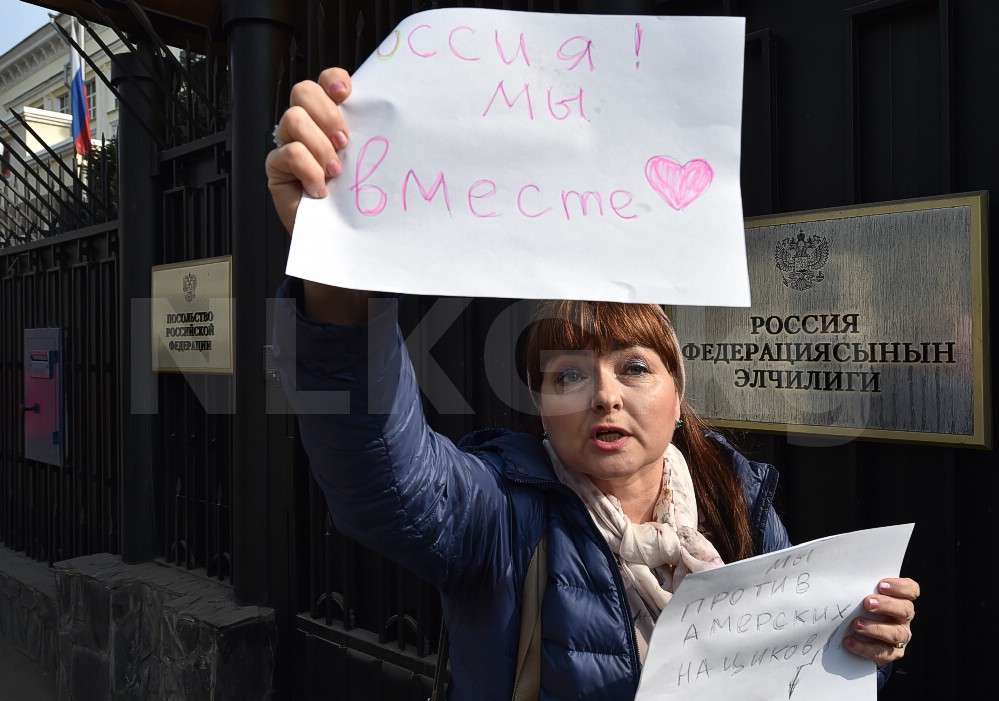 Россия!
мы
вместе
ПОСОЛЬСТВО
РОССИЙСКОЙ
ФЕДЕРАЦИИ
РОССИЯ
ФЕДЕРАЦИЯСЫНЫН
ЭЛЧИЛИГИ
мы
ПРОТИВ
АМЕРСКИХ
НАЦИКОВ!